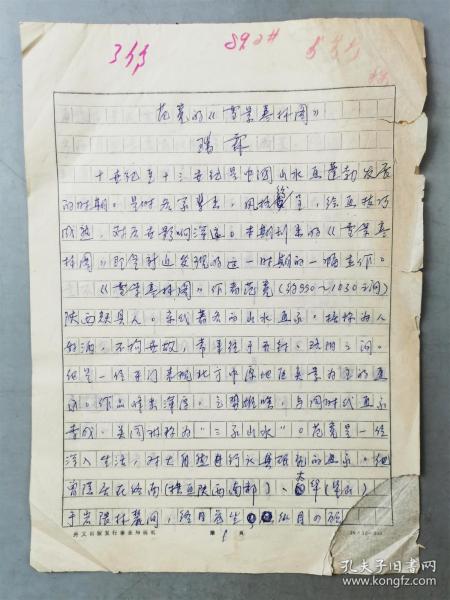 范宽的《雪景寒林图》
瑞霖
十世纪至十三世纪是中国山水画蓬勃发展
的时期。是时名家辈出，风格各异，绘画技巧
成熟，对后世影响深远。本期刊末的《雪景寒
林图》即是新近发现的这一时期的一幅杰作。
《雪景寒林图》作者范宽（约950～1030之间）
陕西耀县人。宋代著名的山水画家。据称为人
好酒，不拘世故，常来往于开封、洛阳之间。
他是一位专门表现北方中原地区关景为主的画
家。作品峰峦深厚，气势雄峻，与同时代画家
李成、关同被称为“三家山水”。范宽是一位
深入生活，对大自然进行认真研究的画家。他
曾隐居在终南（陕西南部）、太华（华山）
于岩隈林麓间，终日危坐，纵目四顾
外文出版发行事业局稿纸
第 1 页
孔夫子旧书网